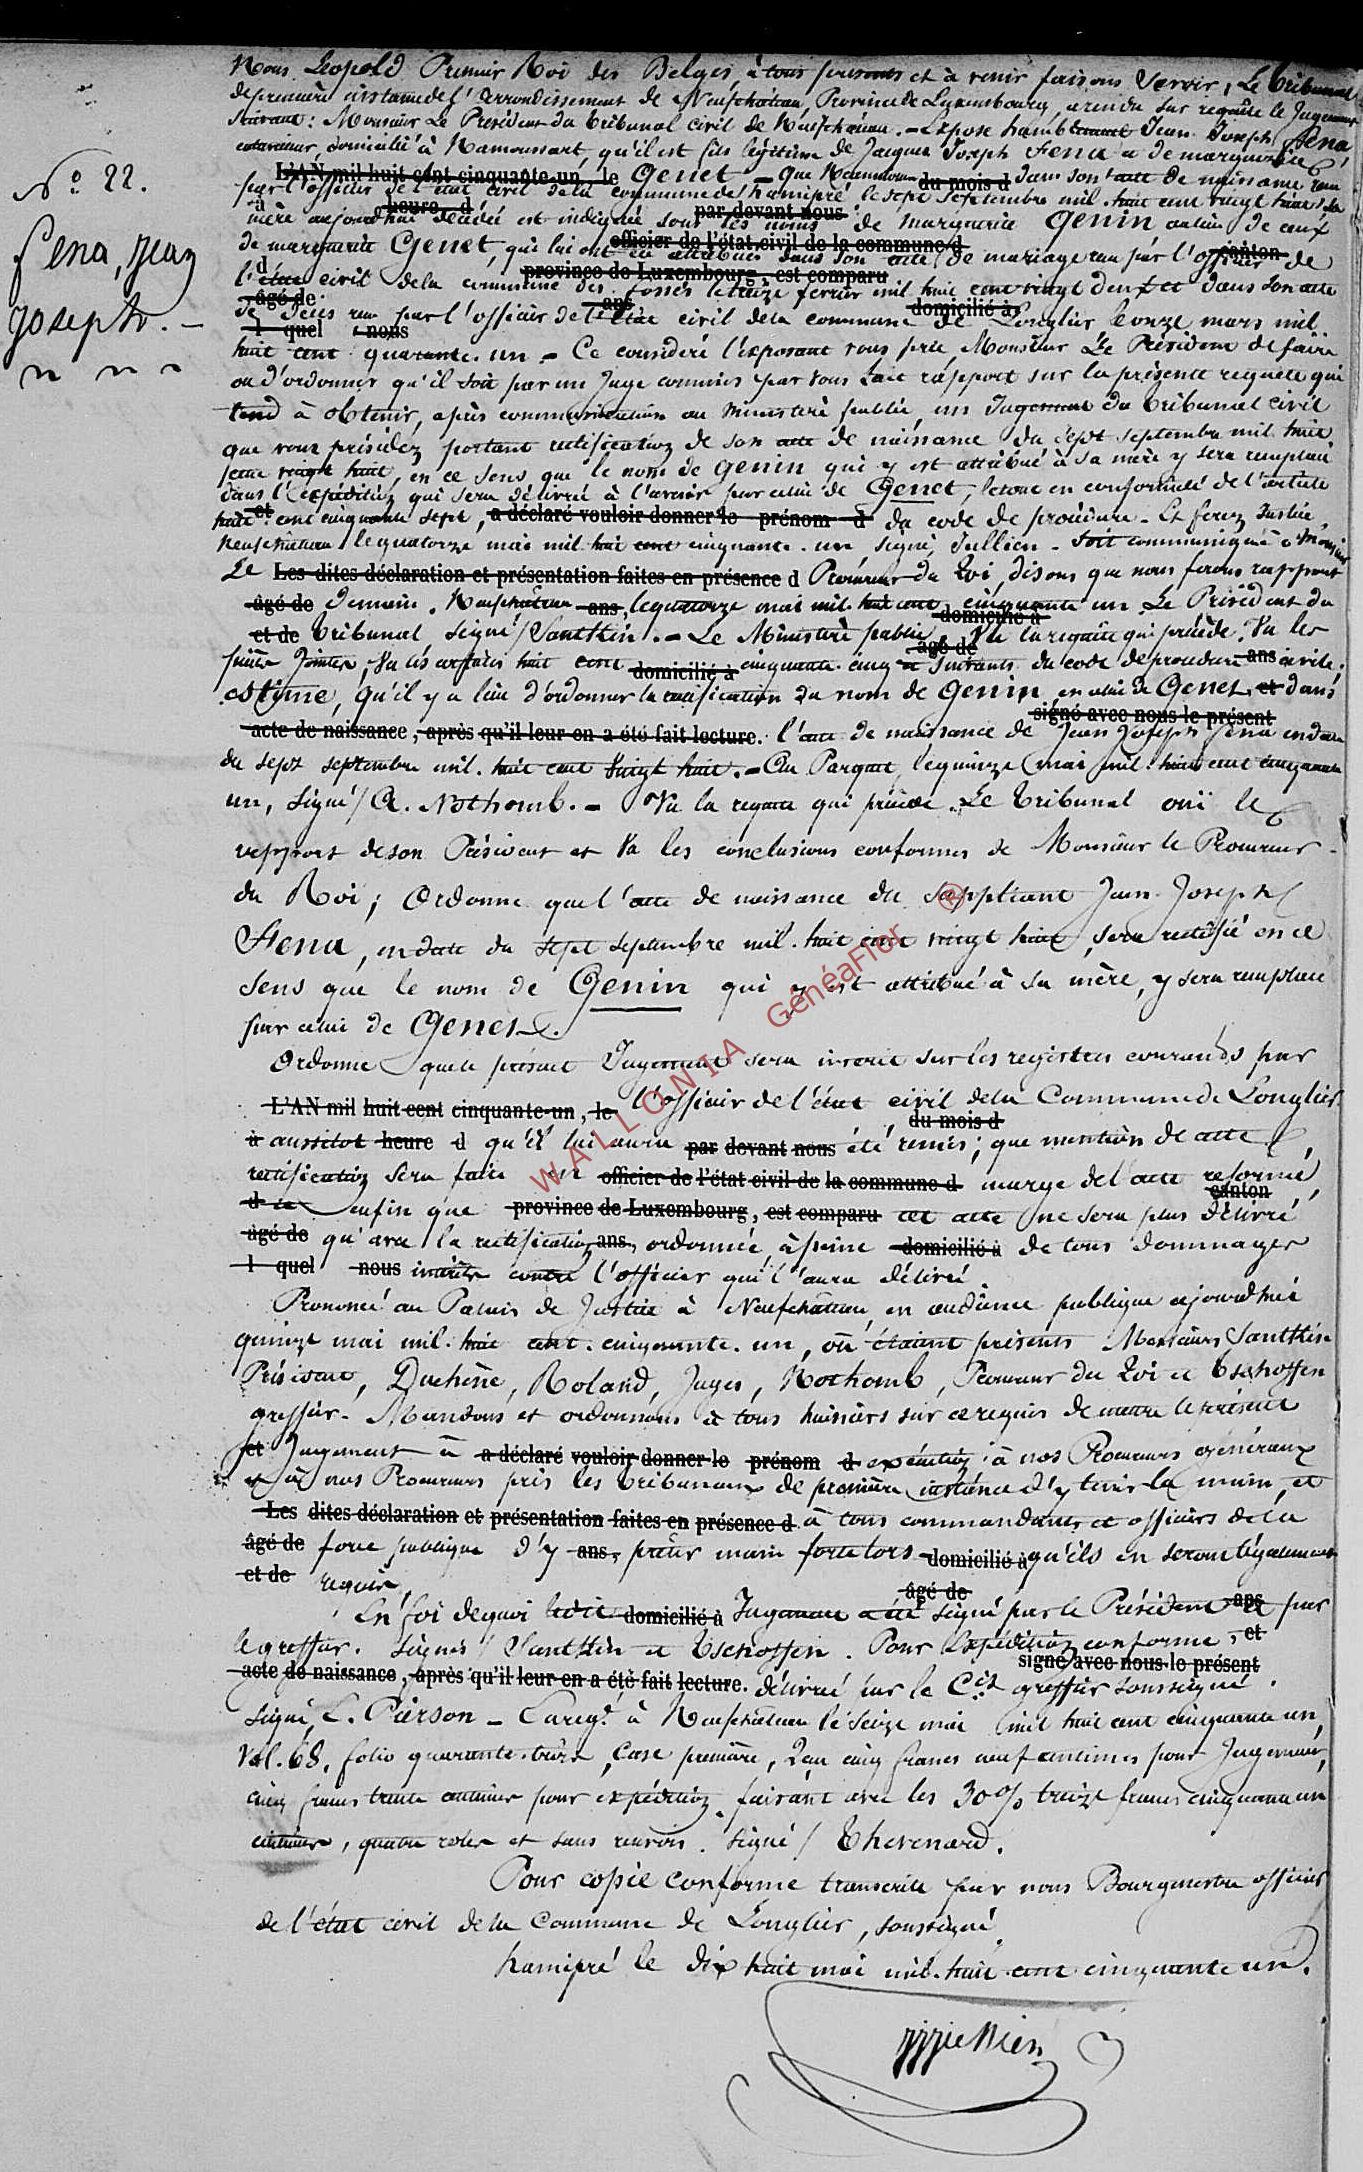 Nous Léopold Premier Roi des Belges, à tous présents et à venir faisons savoir, Le tribunal
de première instance de l'arrondissement de Neufchâteau, Province de Luxembourg, a rendu sur requête le Jugement
suivant : Monsieur Le Président du tribunal civil de Neufchâteau. – Expose humblement Jean Joseph Fena,
cultivateur, domicilié à Namoussart, qu'il est fils légitime de Jacques Joseph Fena et de marguerite
L'AN mil huit cent cinquante-un, le Genet – que néanmoins du mois d dans son acte de naissance reçu
par l'officier de l'état civil de la commune de hamipré le sept septembre mil huit cent vingt huit, sa
à heure d par devant nous
mère aujourd'hui décédée est indiquée sous les noms de marguerite Genin au lieu de ceux
N° 22.
Fena, Jean
Joseph. –
de marguerite Genet, qui lui ont été attribués dans son acte de mariage reçu par l'officier de
officier de l'état civil de la commune d canton
d province de Luxembourg, est comparu
l'état civil de la commune des fossés le treize fevrier mil huit cent vingt deux et dans son acte
âgé de ans domicilié à
de décès reçu par l'officier de l'état civil de la commune de Longlier le onze mars mil
l quel nous
huit cent quarante-un – Ce considéré l'exposant vous prie, Monsieur Le Président de faire
ou d'ordonner qu'il soit par un Juge commis par vous fait rapport sur la présente requête qui
tend à obtenir, après communication au ministère public, un Jugement du tribunal civil
que vous présidez portant rectification de son acte de naissance du sept septembre mil huit
cent vingt huit, en ce sens que le nom de Genin qui y est attribué à sa mère y sera remplacé
dans l'expédition qui sera délivrée à l'avenir par celui de Genet, le tout en conformité de l'article
et
huit cent cinquante sept, a déclaré vouloir donner le prénom d du code de procédure – Et ferez Justice,
Neufchâteau le quatorze mai mil huit cent cinquante-un, signé, Jullien – Soit communiqué à Monsieur
Le Les dites déclaration et présentation faites en présence d Procureur du Roi, disons que nous ferons rapport
âgé de demain. Neufchâteau ans, le quatorze mai mil huit cent cinquante un Le Président du
domicilié à
et de tribunal signé / Santkin. – Le Ministère public, Vu la requête qui précède, Vu les
âgé de
pièces jointes, Vu les articles huit cent domicilié à cinquante-cinq et suivants du code de procédure ans civile.
Estime, qu'il y a lieu d'ordonner la rectification du nom de Genin, en celui de Genet et dans
signé avec nous le présent
acte de naissance, après qu'il leur en a été fait lecture. l'acte de naissance de Jean Joseph Fena en date
du sept septembre mil huit cent vingt huit. – Au Parquet, le quinze mai mil huit cent cinquante
un, signé / A. Nothomb. – Vu la requête qui précède. Le Tribunal ouï le
rapport de son Président et Vu les conclusions conformes de Monsieur le Procureur
du Roi ; Ordonne que l'acte de naissance du suppliant Jean Joseph
Fena, en date du sept septembre mil huit cent vingt huit, sera rectifié en ce
sens que le nom de Genin qui y est attribué à sa mère, y sera remplacé
par celui de Genet.
Ordonne que le présent Jugement sera inscrit sur les registres courants par
L'AN mil huit cent cinquante-un, le l'officier de l'état civil de la Commune de Longlier
du mois d
à aussitot heure d qu'il lui aura par devant nous été remis ; que mention de cette
rectification sera faite en officier de l'état civil de la commune d marge de l'acte reformé,
canton
d enfin que province de Luxembourg, est comparu cet acte ne sera plus délivré
âgé de qu'avec la rectification ans, ordonnée, à peine domicilié à de tous dommages
l quel nous intérêts contre l'officier qui l'aura délivré.
Prononcé au Palais de Justice à Neufchâteau, en audience publique aujourd'hui
quinze mai mil huit cent cinquante-un, où étaient présents Messieurs Santkin
Président, Duchêne, Roland, Juges, Nothomb, Procureur du Roi et Tschoffen
greffier. Mandons et ordonnons à tous huissiers sur ce requis de mettre le présent
et Jugement à a déclaré vouloir donner le prénom d exécution ; à nos Procureurs généraux
et à nos Procureurs près les tribunaux de première instance d'y tenir la main, et
Les dites déclaration et présentation faites en présence d à tous commandants et officiers de la
âgé de force publique d'y ans, prêter main forte lors domicilié à qu'ils en seront légalement
et de requis.
âgé de
En foi de quoi le dit domicilié à Jugement a été signé par le Président ans et par
le greffier. Signés / Santkin et Tschoffen. Pour Expédition conforme, et
signé avec nous le présent
acte de naissance, après qu'il leur en a été fait lecture. délivrée par le Cis greffier soussigné.
Signé, C. Pierson – Enregt. à Neufchâteau le seize mai mil huit cent cinquante un,
Vol. 68, folio quarante-trois, case première, Reçu cinq francs neuf centimes pour Jugement,
cinq francs trente centimes pour expédition, faisant avec les 30% treize francs cinquante un
centimes, quatre roles et sans renvois. Signé / Thevenard.
Pour copie conforme transcrite par nous Bourgmestre officier
de l'état civil de la Commune de Longlier, soussigné.
hamipré le dix huit mai mil huit cent cinquante un.
WALLONIA GénéaFlor ®